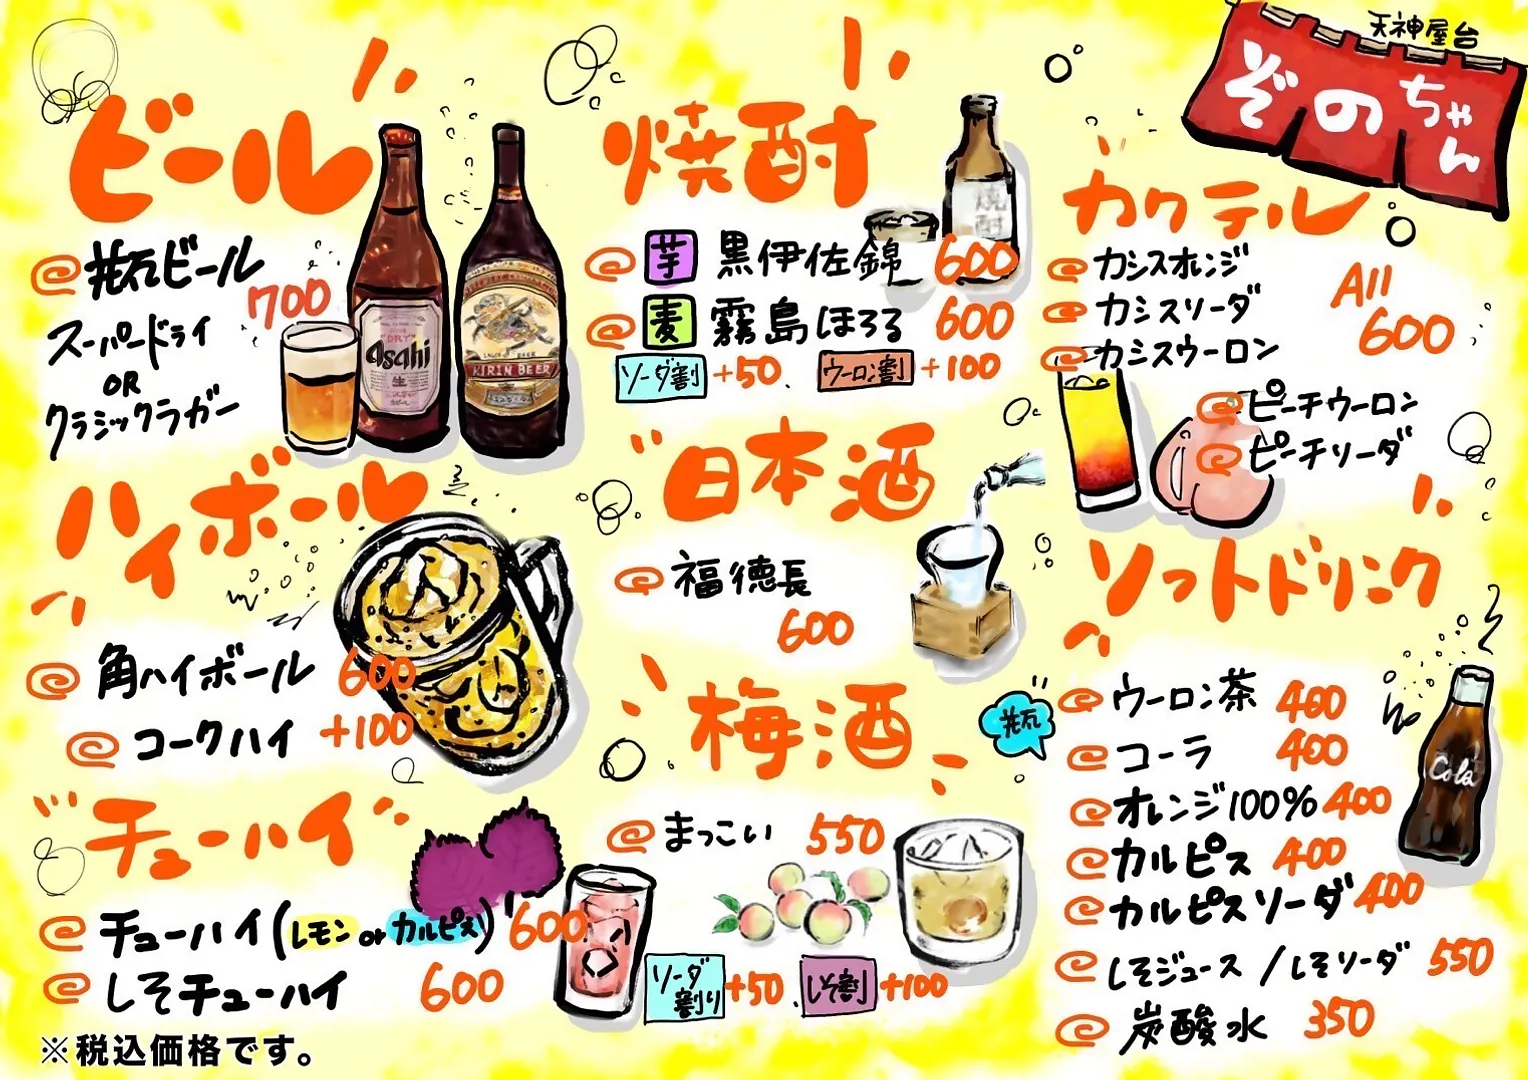 天神屋台
ぞのちゃん
ビール
瓶ビール
700
スーパードライ
OR
クラシックラガー
Asahi
KIRIN BEER
ハイボール
角ハイボール 600
コークハイ +100
チューハイ
チューハイ(レモン or カルピス) 600
しそチューハイ 600
※税込価格です。
焼酎
焼酎
芋 黒伊佐錦 600
麦 霧島ほろる 600
ソーダ割 +50、ウーロン割 +100
日本酒
福徳長
600
梅酒
まっこい 550
ソーダ割り +50、しそ割 +100
カクテル
カシスオレンジ
カシスソーダ
カシスウーロン
All
600
ピーチウーロン
ピーチソーダ
ソフトドリンク
瓶
ウーロン茶 400
コーラ 400
オレンジ100% 400
カルピス 400
カルピスソーダ 400
しそジュース/しそソーダ 550
炭酸水 350
Cola